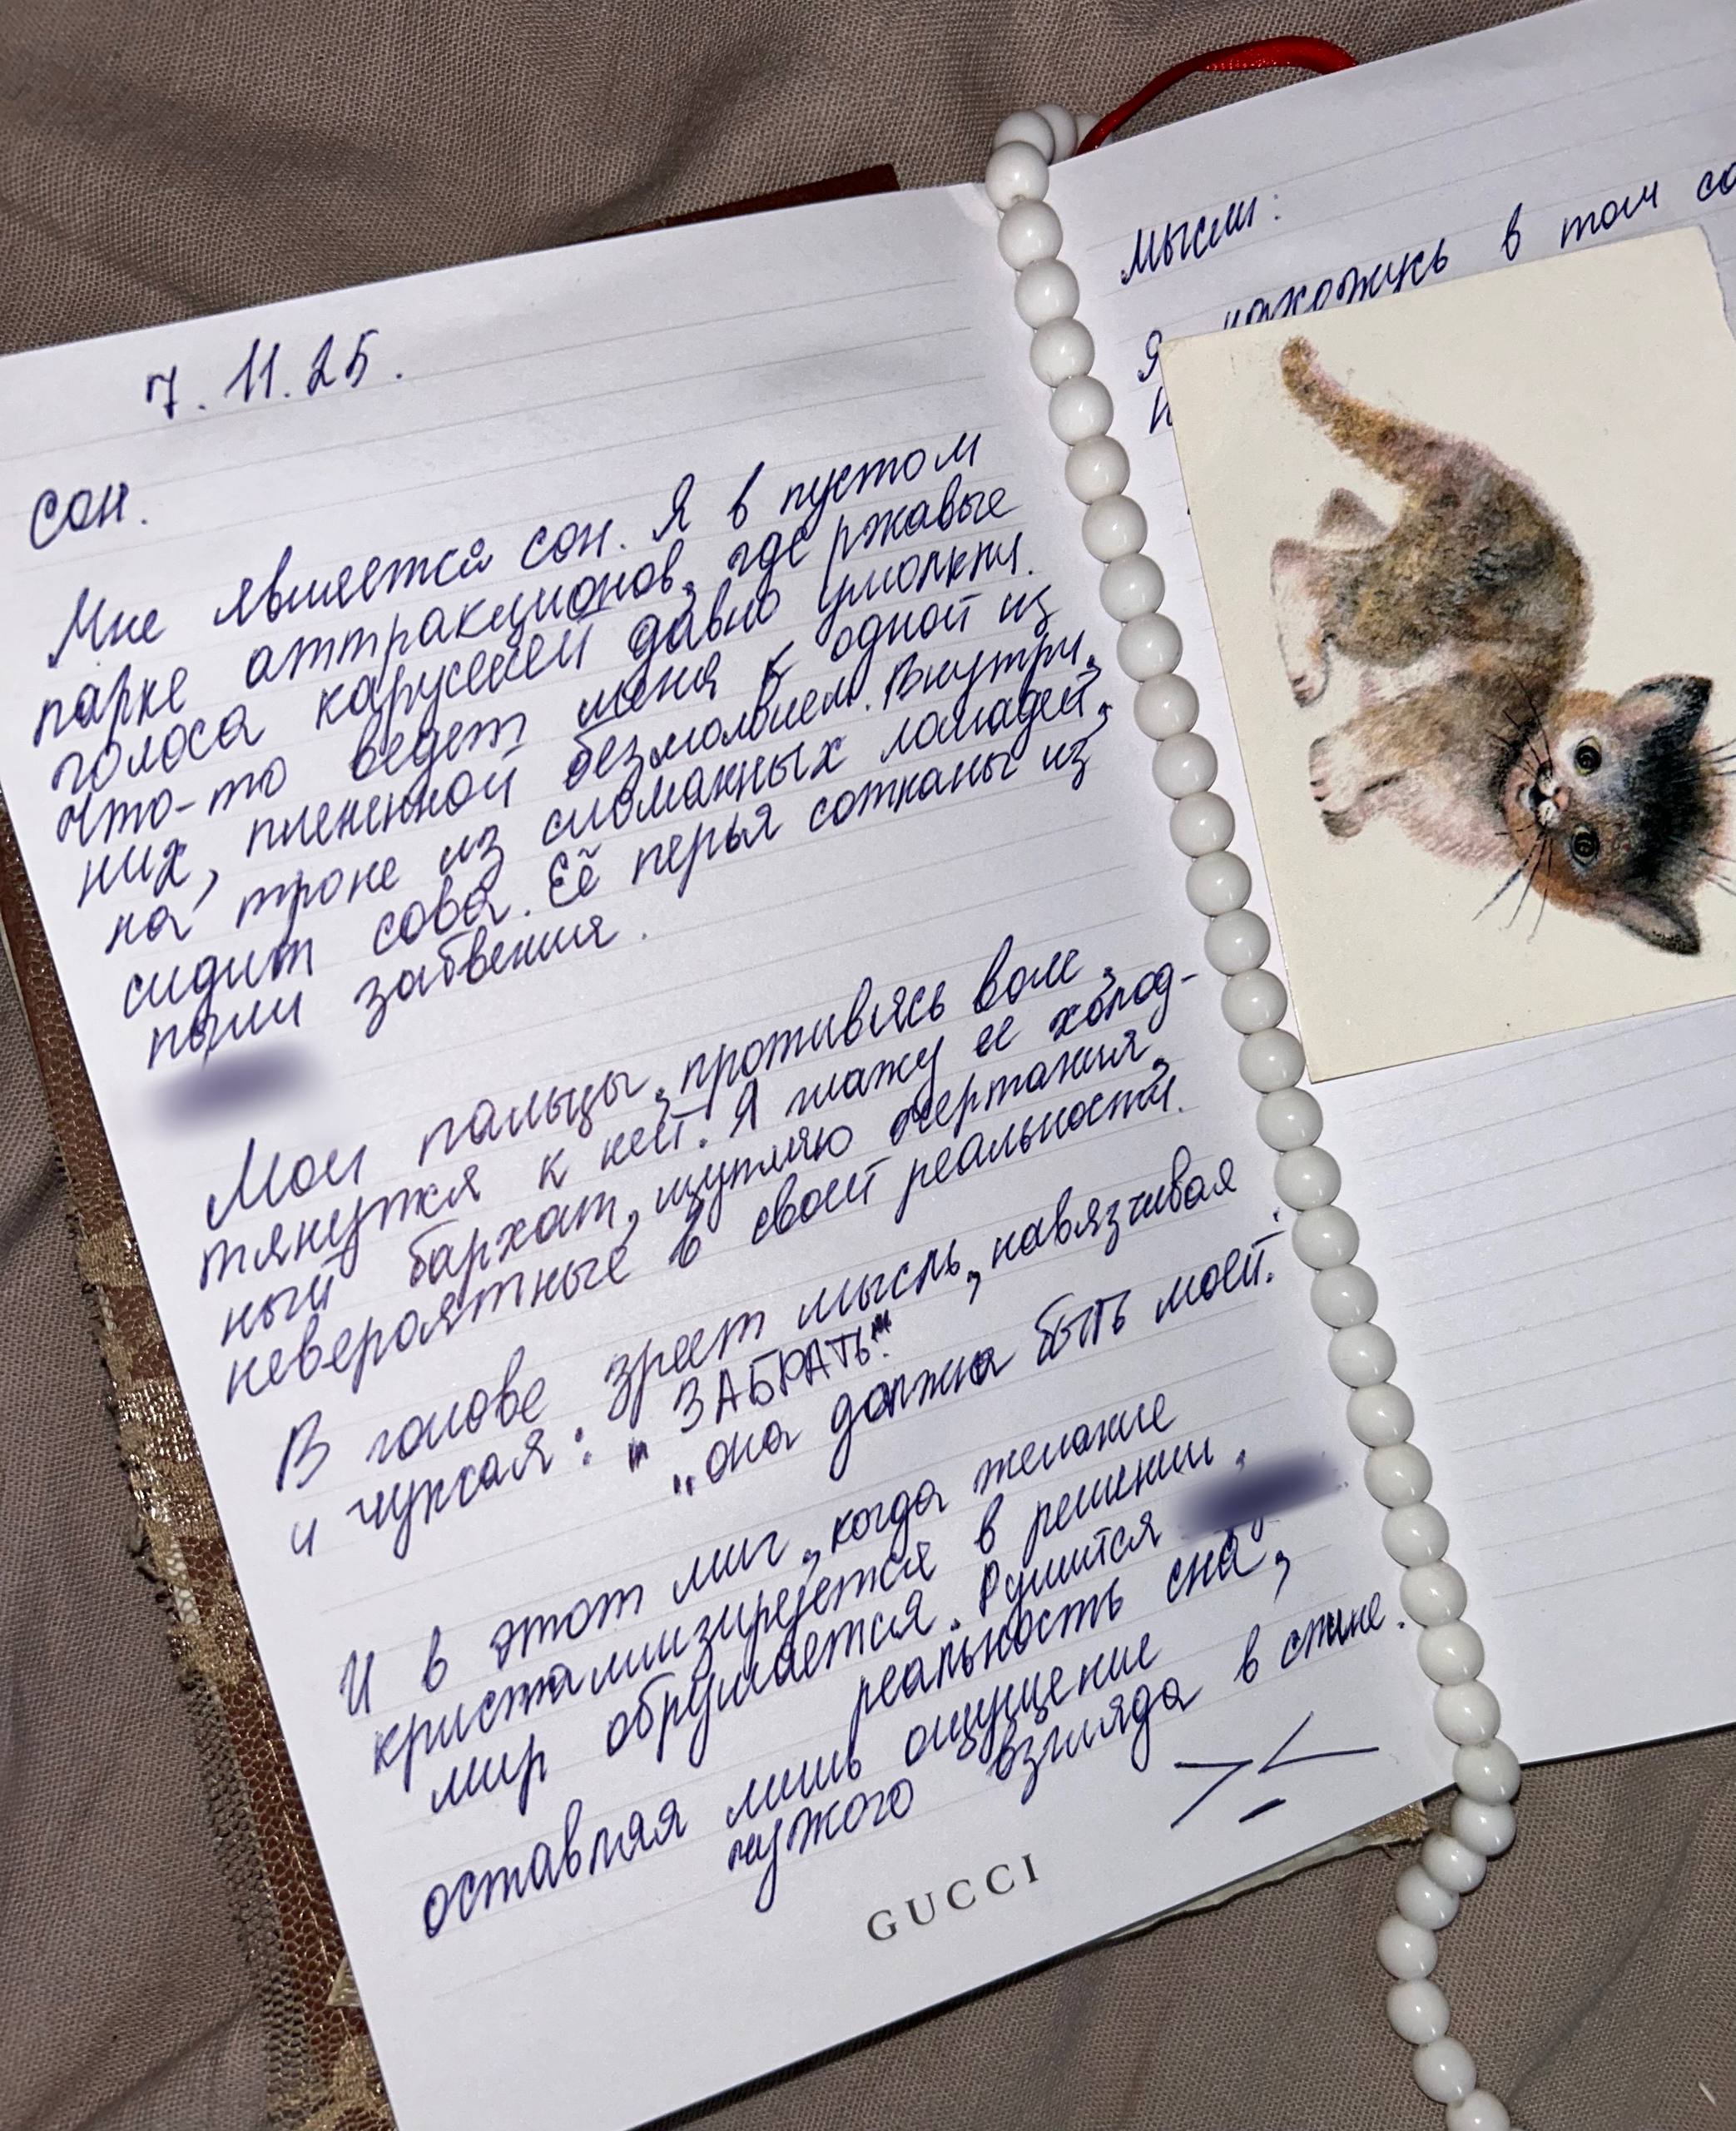 7.11.25.
Сон.
Мне является сон. Я в пустом
парке аттракционов, где ржавые
голоса каруселей давно умолкли.
Что-то ведет меня к одной из
них, плененной безмолвием. Внутри,
на троне из сломанных лошадей,
сидит сова. Её перья сотканы из
пыли забвения.
Мои пальцы, противясь воле,
тянутся к ней. Я глажу ее холод-
ный бархат, щупаю очертания,
невероятные в своей реальности.
В голове зреет мысль, навязчивая
и чужая: "ЗАБРАТЬ."
„она должна быть моей."
И в этот миг, когда желание
кристаллизируется в решении,
мир обрушается. Рушится
реальность сна,
оставляя лишь ощущение
чужого взгляда в спине.
GUCCI
Мысли:
Я нахожусь в том